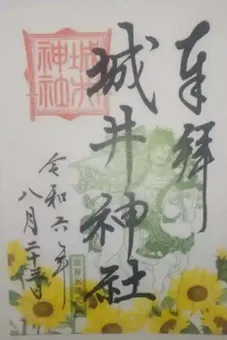 奉拝
城井神社
城井
神社
令和六年
八月二十三日